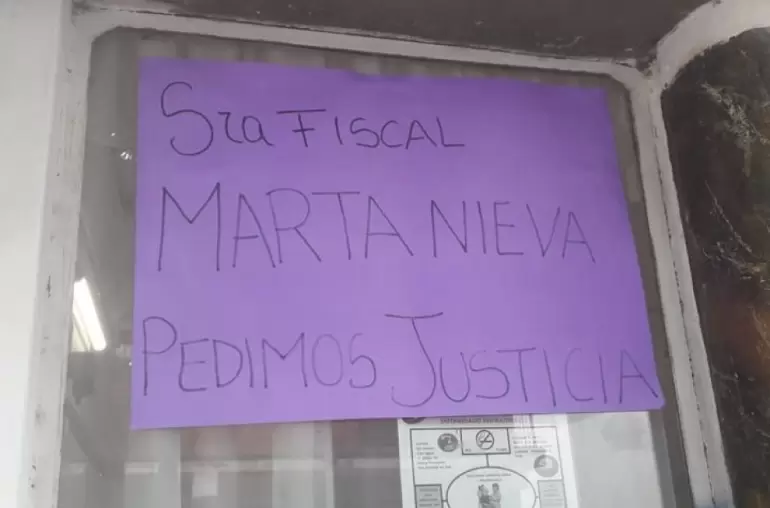 Sra FISCAL
MARTA NIEVA
PEDIMOS JUSTICIA